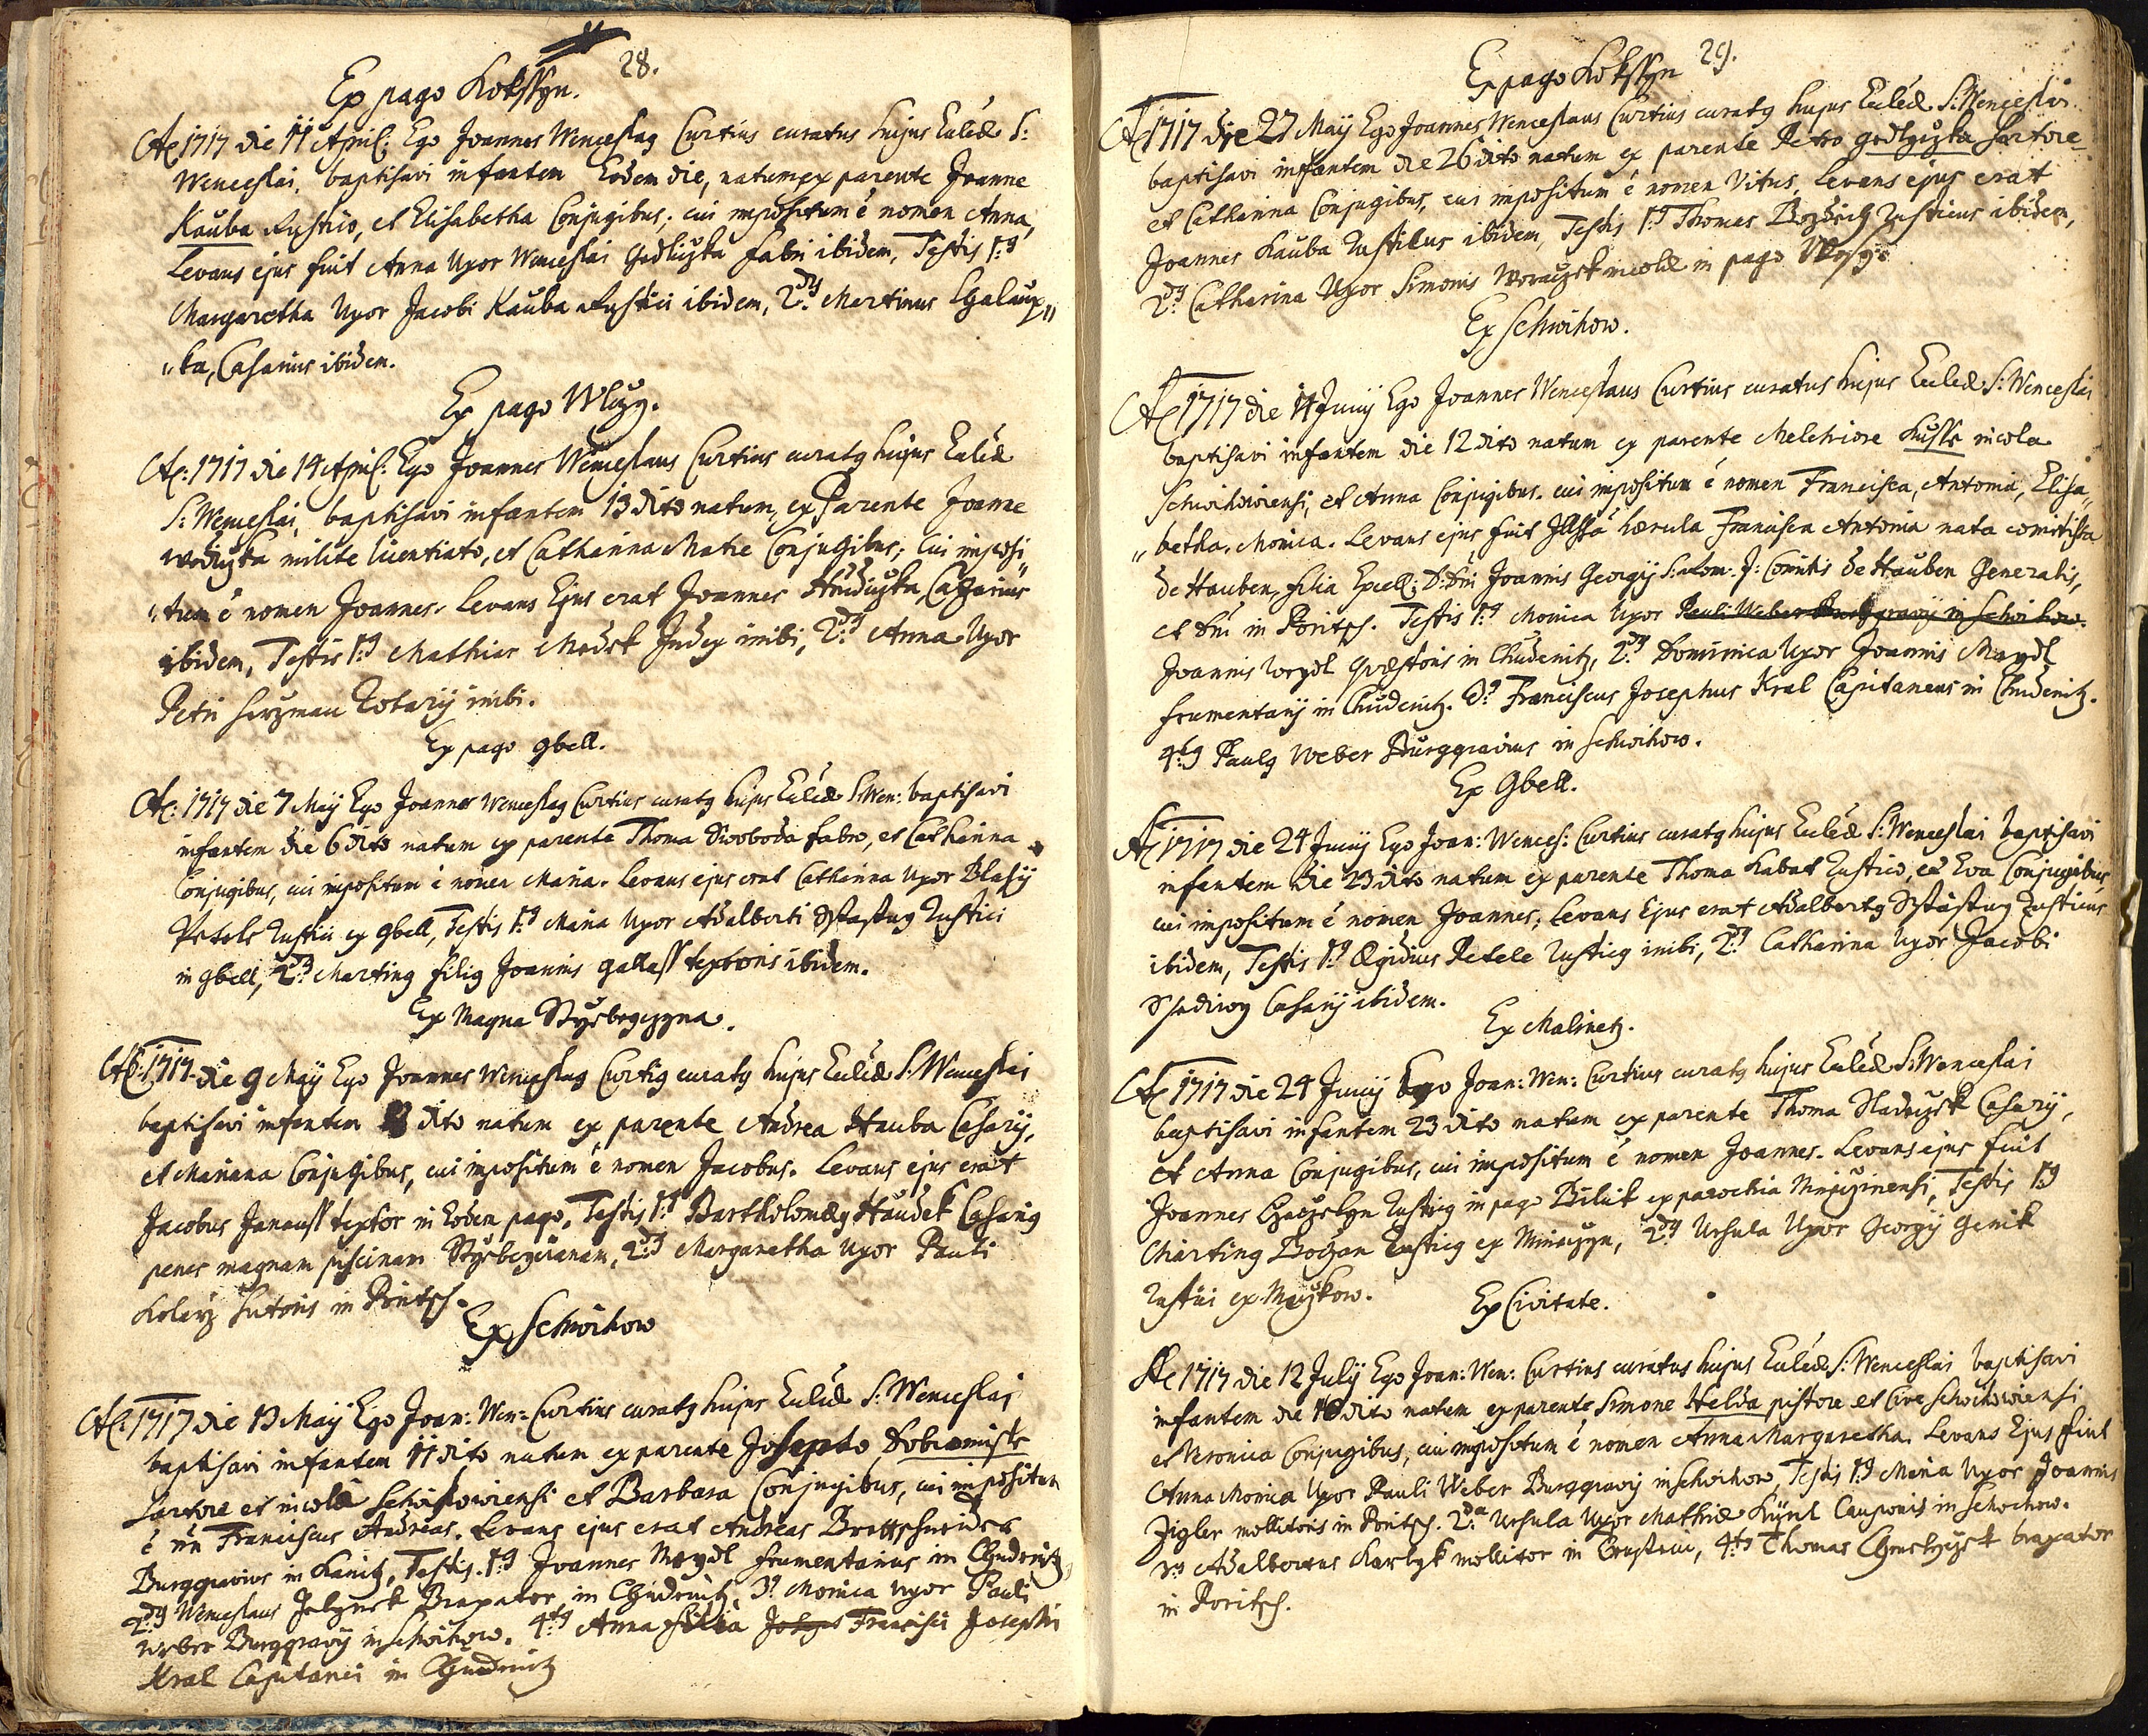 28.
Ex pago Kokssyn.
Ao 1717 die 11 April: Ego Joannes Wenceslaq Curtius curatus hujus Eccleae S:
Wenceslai, baptisavi infantem Eodem die, natum ex parente Joanne
Kauba Rustico, et Elisabetha Conjugibus; cui impositum é nomen Anna,
Levans ejus fuit Anna Uxor Wenceslai Hodliczka fabri ibidem, Testis 1q
Margaretha Uxor Jacobi Kauba Rustici ibidem, 2dq Martinus Chalaup„
„ka, Casarius ibidem.
Ex pago Wlczy.
Ao: 1717 die 14 April: Ego Joannes Wenceslaus Curtius curatq hujus Eccleae
S: Wenceslai, baptisavi infantem 13 dito natum, ex Parente Joanne
Wodiczka milite licentiato, et Catharina Matre Conjugibus; cui imposi„
„tum é nomen Joannes. Levans Ejus erat Joannes Hrudiczka, Casarius
ibidem, Testis 1q Mathias Madsk Judex inibi, 2dq Anna Uxor
Petri Herzman Rotarij inibi.
Ex pago gbell.
Ao: 1717 die 7 Maij Ego Joannes Wenceslaq Curtius curatq hujus Eccleae S: Wen: baptisavi
infantem die 6 dito natum ex parente Thoma Swoboda fabro, et Catharina
Conjugibus, cui impositum é nomen Maria. Levans ejus erat Catharina Uxor Blasij
Petele Rustici ex gbell, Testis 1q Maria Uxor Adalberti Sstastny Rustici
in gbell, 2dq Martinq filiq Joannis gallass textoris ibidem.
Ex Magna Stržebegczyna.
Ao: 1717 die 9 Maij Ego Joannes Wenceslaq Curtiq curatq hujus Eccleae S: Wenceslai
baptisavi infantem 8 dito natum ex parente Andrea Hauba Casarij,
et Mariana Conjugibus, cui impositum é nomen Jacobus. Levans ejus erat
Jacobus Janauss textor in Eodem pago, Testis 1q Bartholomaeq Haudek Casariq
penes magnam piscinam Stržebeczianam, 2dq Margaretha Uxor Pauli
Kolarz Sutoris in Poritsch.
Ex Schwihow
Ao: 1717 die 13 Maij Ego Joan: Wen: Curtius curatq hujus Eccleae S: Wenceslai
baptisavi infantem 11 dito natum ex parente Josepho Dobromisle
Sartore et incola Schwihowiensi et Barbara Conjugibus, cui impositum
é nn Franciscus Andreas. Levans ejus erat Andreas Brettschneider
Burggravius in Kanitz, Testis. 1q Joannes Maydl frumentarius in Chudenitz,
2dq Wenceslaus Jelynek Braxator in Chudenitz, 3q Monica Uxor Pauli
Weber Burggravij in Schwihow. 4tq Anna filia Francisci Josephi
Kral Capitanei in Chudenitz
29.
Ex pago Kokssyn
Ao 1717 die 27 Maij Ego Joannes Wenceslaus Curtius curatq hujus Eccleae S: Wenceslai
baptisavi infantem die 26 dito natum ex parente Petro Hodlyczka Sartore
et Catharina Conjugibus, cui impositum é nomen Vitus, Levans ejus erat
Joannes Kauba Rusticus ibidem, Testis 1q Thomas Bozdiech Rusticus ibidem,
2dq Catharina Uxor Simonis Woraczek incolae in pago Wlczy.
Ex Schwihow.
Ao 1717 die 14 Junij Ego Joannes Wenceslaus Curtius curatus hujus Eccleae S: Wenceslai
baptisavi infantem die 12 dito natum ex parente Melchiore Kusse incola
Schwihowiensi, et Anna Conjugibus. cui impositum é nomen Francisca, Antonia, Elisa„
„betha, Monica. Levans ejus fuit Illssa herula Francisca Antonia nata comitissa
de Hauben, filia Excell: D: Dni Joannis Georgij S: Rom: J: Comitis de Hauben Generalis,
et Dni in Poritsch. Testis 1q Monica Uxor Pauli Weber Burggravij in Schwihow.
Joannis Weydl Quaestoris in Chudenitz, 2dq Dominica Uxor Joannis Maydl
frumentarij in Chudenitz. 3q Franciscus Josephus Kral Capitaneus in Chudenitz.
4tq Paulq Weber Burggravius in Schwihow.
Ex Gbell.
Ao 1717 die 24 Junij Ego Joan: Wences: Curtius curatq hujus Eccleae S: Wenceslai baptisavi
infantem die 23 dito natum ex parente Thoma Kabat Rustico, et Eva Conjugibus,
cui impositum é nomen Joannes; Levans Ejus erat Adalbertq Sstastny Rusticus
ibidem, Testis 1q Aegidius Petele Rusticq inibi, 2dq Catharina Uxor Jacobi
Ssediwy Casarij ibidem.
Ex Malinetz.
Ao 1717 die 24 Junij Ego Joan: Wen: Curtius curatq hujus Eccleae S: Wenceslai
baptisavi infantem 23 dito natum ex parente Thoma Sladeczek Casarij,
et Anna Conjugibus, cui impositum é nomen Joannes. Levans ejus fuit
Joannes Rusticq in pago Biluk ex parochia Mirziczinensi, Testis 1q
Martinq Boczan Rusticq ex Miniczyn, 2dq Ursula Uxor Georgij Genik
Rustici ex Myczkow.
Ex Civitate.
Ao 1717 die 12 Julij Ego Joan: Wen: Curtius curatus hujus Eccleae S: Wenceslai baptisavi
infantem die 10 dito natum ex parente Simone Helda pistore et Cive Schwihowiensi
et Veronica Conjugibus, cui impositum é nomen Anna Margaretha. Levans Ejus fuit
Anna Monica Uxor Pauli Weber Burggravij in Schwihow, Testis 1q Maria Uxor Joannis
Zigler mollitoris in Poritsch. 2da Ursula Uxor Mathiae Künl Cauponis in Schwihow.
3q Adalbertus Karlyk mollitor in 4tq Thomas braxator
in Poritsch.